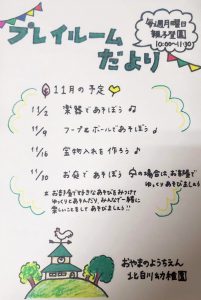 毎週月曜日
親子登園
10:00~11:30
プレイルーム
だより
11月の予定
11/2 楽器であそぼう
11/9 フープ&ボールであそぼう
11/16 宝物入れを作ろう
11/30 お庭であそぼう(雨の場合は、お部屋でゆっくりあそびましょう)
☆お部屋で好きなあそびをみつけて
ゆっくりとあそんだり、みんなで一緒に
楽しいことをしてあそびましょう!!
おやまのようちえん
北白川幼稚園